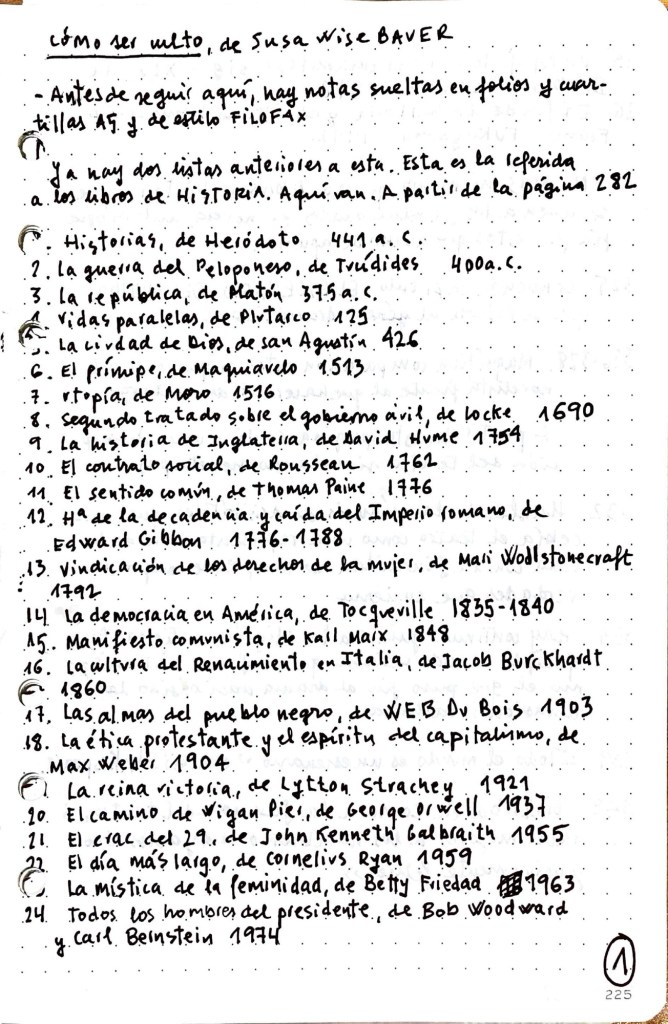 cómo ser culto, de Susa Wise BAVER
- Antes de seguir aquí, hay notas sueltas en folios y cuar-
tillas A5 y de estilo FILOFAX
Ya hay dos listas anteriores a esta. Esta es la referida
a los libros de HISTORIA. Aquí van. A partir de la página 282
. Historias, de Heródoto 441 a.C.
2. La guerra del Peloponeso, de Tucídides 400 a.C.
3. La república, de Platón 375 a.C.
4. Vidas paralelas, de Plutarco 125
5. La ciudad de Dios, de san Agustín 426
6. El príncipe, de Maquiavelo 1513
7. Utopía, de Moro 1516
8. Segundo tratado sobre el gobierno civil, de Locke 1690
9. La historia de Inglaterra, de David Hume 1754
10 El contrato social, de Rousseau 1762
11 El sentido común, de Thomas Paine 1776
12. Hª de la decadencia y caída del Imperio romano, de
Edward Gibbon 1776-1788
13. Vindicación de los derechos de la mujer, de Mari Wodlstonecraft
1792
14. La democracia en América, de Tocqueville 1835-1840
15. Manifiesto comunista, de Karl Marx 1848
16. La cultura del Renacimiento en Italia, de Jacob Burckhardt
1860
17. Las almas del pueblo negro, de WEB Du Bois 1903
18. La ética protestante y el espíritu del capitalismo, de
Max Weber 1904
La reina victoria, de Lytton Strachey 1921
20 El camino de Wigan Pier, de George Orwell 1937
21 El crac del 29, de John Kenneth Galbraith 1955
22 El día más largo, de Cornelius Ryan 1959
La mística de la feminidad, de Betty Friedad 1963
24 Todos los hombres del presidente, de Bob Woodward
y Carl Bernstein 1974
1
225